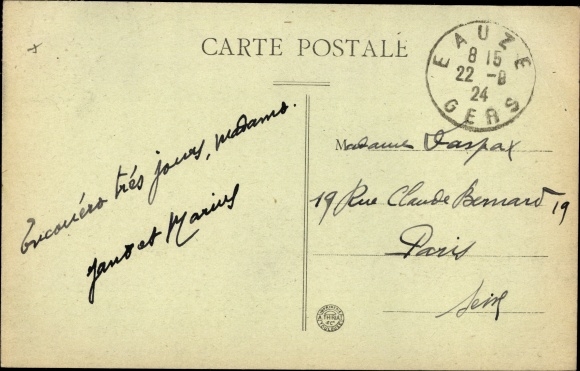 CARTE POSTALE
EAUZE
8 15
22 -8
24
GERS
Encouéro très jours, madamo.
et Marius
Madame Daspax
19 Rue Claude Bernard 19
Paris
Seine